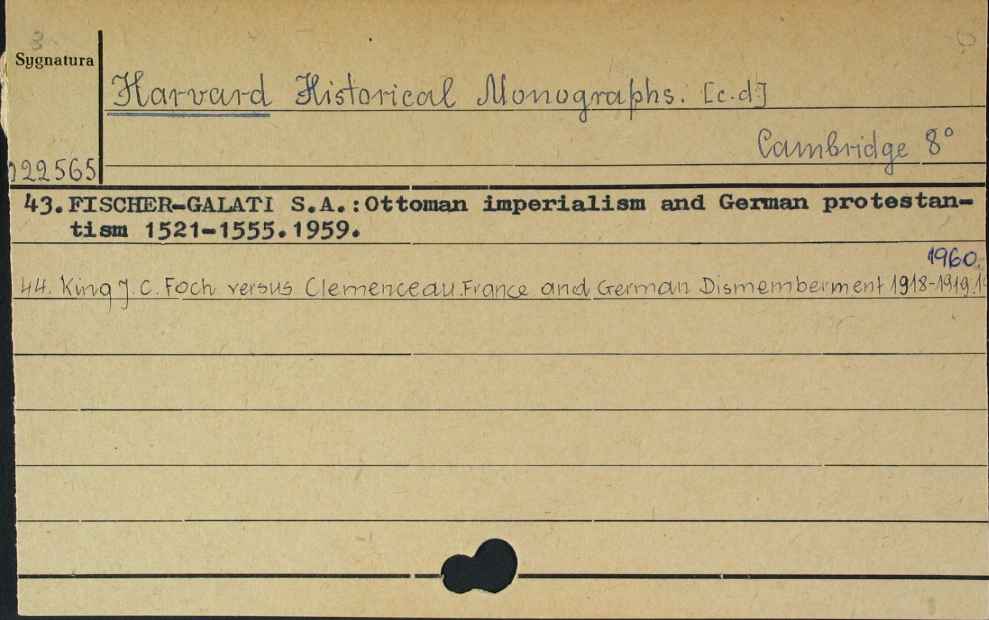 3
Sygnatura
Harvard Historical Monographs. [c.d]
Cambridge 8°
22565
43. FISCHER-GALATI S.A.: Ottoman imperialism and German protestan-
tism 1521-1555. 1959.
1960.
44. King J. C. Foch versus Clemenceau. France and German Dismemberment 1918-1919.